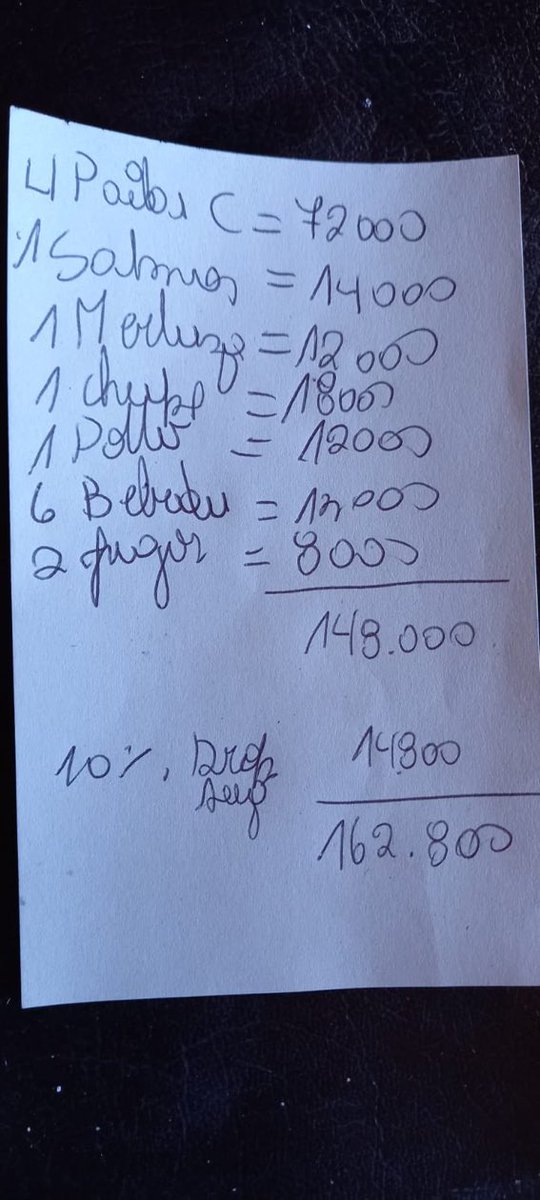 4 Pailas C = 72000
1 Salmon = 14000
1 Merluza = 12000
1 chupe = 18000
1 Pollo = 12000
6 Bebidas = 12000
2 jugos = 8000
148.000
10%. Prop 14800
Sug
162.800